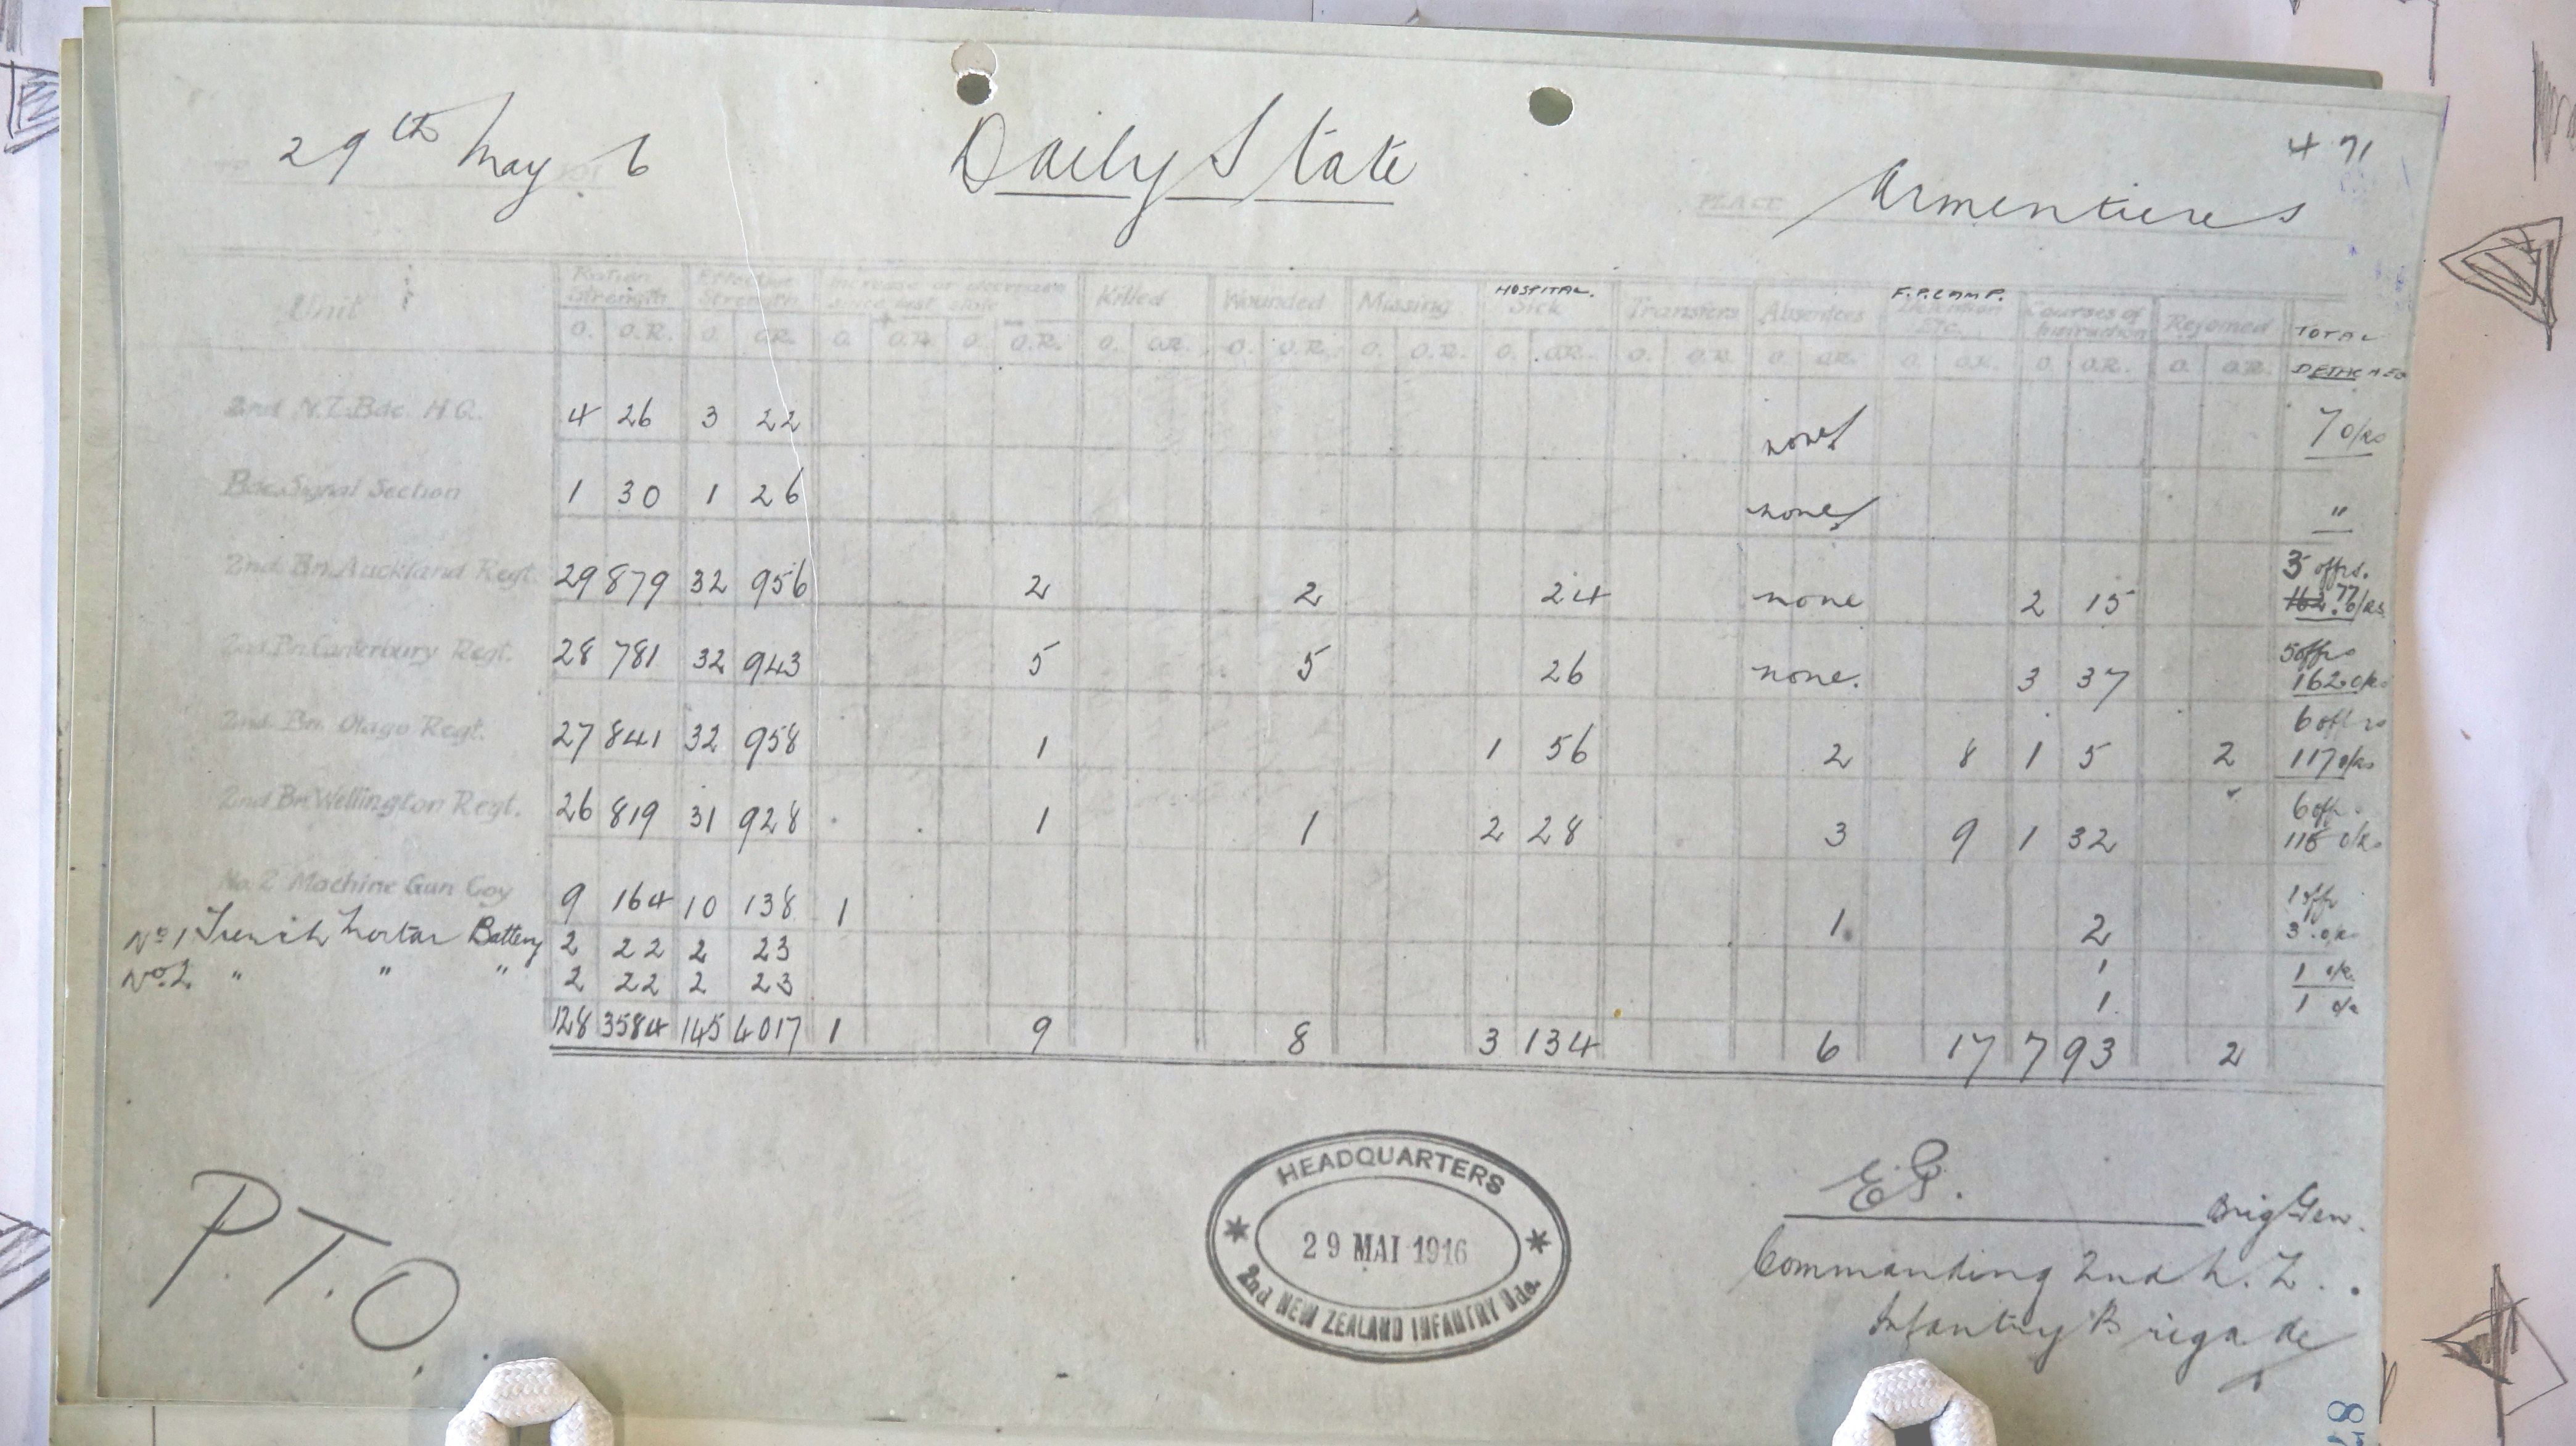 4 71
29th May 6 Daily State Armentieres
PLACE
Unit Ration Strength Effective Strength Increase or decrease + last state - Killed Wounded Missing HOSPITAL. Sick Transfers Absentees F.P. CAMP. Detention Etc. Courses of Instruction Rejoined TOTAL DETACHED
O. O.R. O. O.R. O. O.R. O. O.R. O. O.R. O. O.R. O. O.R. O. O.R. O. O.R. O. O.R. O. O.R. O. O.R. O. O.R.
2nd N.Z. Bde. H.Q. 4 26 3 22 none 7 o/rs
Bde. Signal Section 1 30 1 26 none "
2nd Bn. Auckland Regt. 29 879 32 956 2 2 24 none 2 15 3 offrs. 77 o/rs
2nd Bn. Canterbury Regt. 28 781 32 943 5 5 26 none. 3 37 5 offrs 162 o/rs
2nd Bn. Otago Regt. 27 841 32 958 1 1 56 2 8 1 5 2 6 offrs 117 o/rs
2nd Bn. Wellington Regt. 26 819 31 928 1 1 2 28 3 9 1 32 6 offr 115 o/rs
No. 2 Machine Gun Coy 9 164 10 138 1 1 2 1 offr 3 o/rs
No 1 Trench Mortar Battery 2 22 2 23 1 1 o/r.
No. 2 " " " 2 22 2 23 1 1 o/r
128 3584 145 4017 1 9 8 3 134 6 17 7 93 2
P.T.O.
HEADQUARTERS
29 MAI 1916
2nd NEW ZEALAND INFANTRY Bde.
Brig Gen.
Commanding 2nd N.Z.
Infantry Brigade